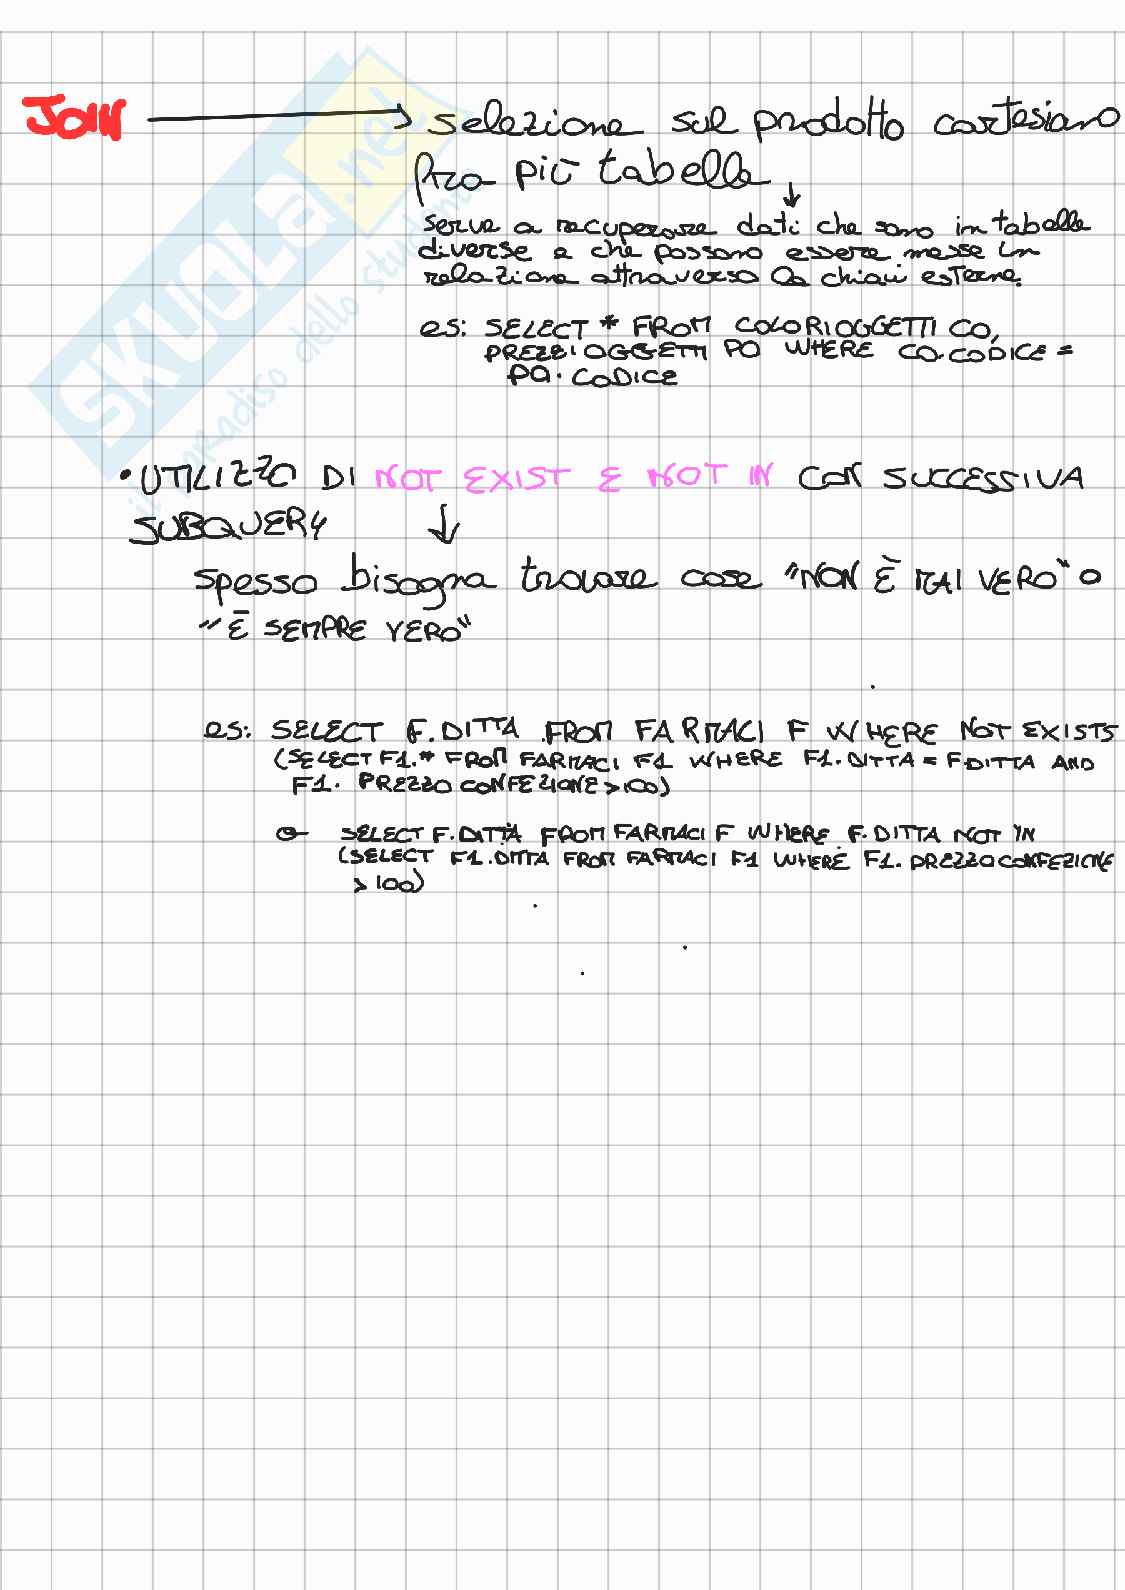 JOIN → selezione sul prodotto cartesiano
fra più tabelle
↓
serve a recuperare dati che sono in tabelle
diverse e che possono essere messe in
relazione attraverso le chiavi esterne.
es: SELECT * FROM COLORIOGGETTI CO,
PREZZIOGGETTI PO WHERE CO.CODICE =
PO.CODICE
• UTILIZZO DI NOT EXIST E NOT IN CON SUCCESSIVA
SUBQUERY ↓
spesso bisogna trovare cose "NON È MAI VERO" o
"È SEMPRE VERO"
es: SELECT F.DITTA FROM FARMACI F WHERE NOT EXISTS
(SELECT F1.* FROM FARMACI F1 WHERE F1.DITTA = F.DITTA AND
F1.PREZZOCONFEZIONE>100)
o SELECT F.DITTA FROM FARMACI F WHERE F.DITTA NOT IN
(SELECT F1.DITTA FROM FARMACI F1 WHERE F1.PREZZOCONFEZIONE
>100)
SKUOLA.net
il paradiso dello studente